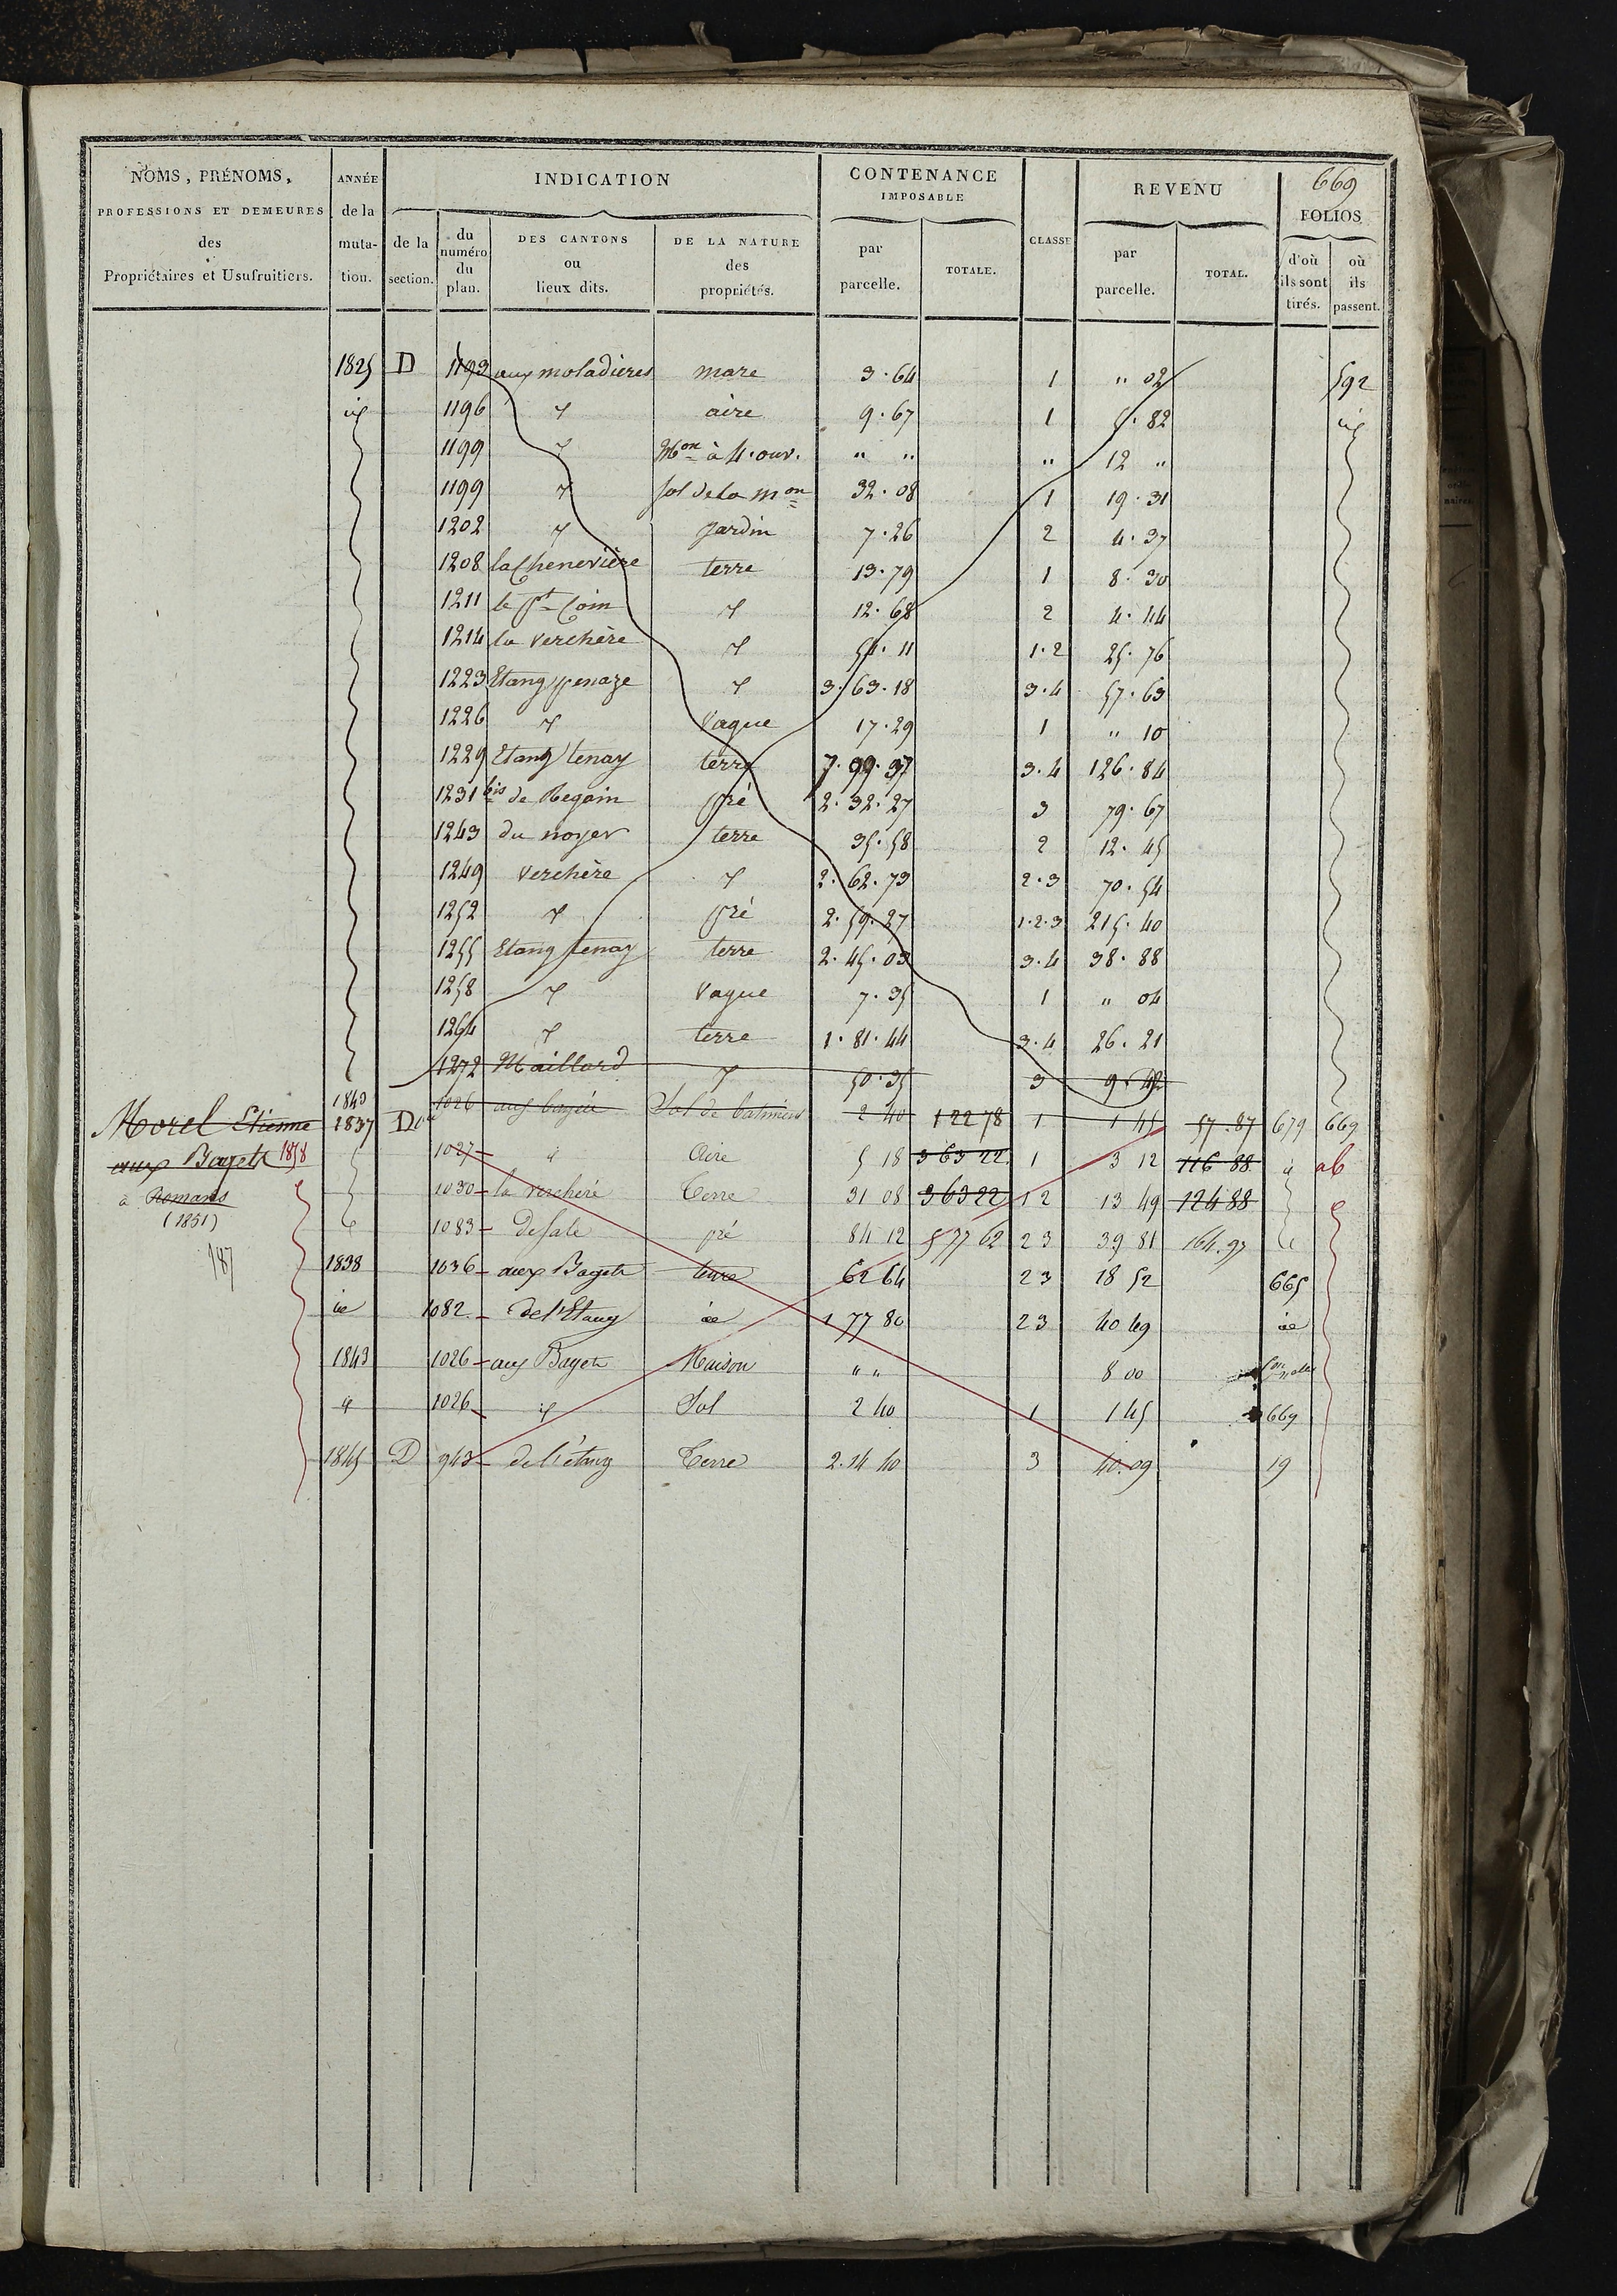 669
NOMS, PRÉNOMS, PROFESSIONS ET DEMEURES des Propriétaires et Usufruitiers.
ANNÉE de la muta- tion.
INDICATION
de la section.
du numéro du plan.
DES CANTONS ou lieux dits.
DE LA NATURE des propriétés.
CONTENANCE IMPOSABLE
par parcelle.
TOTALE.
CLASSE
REVENU
par parcelle.
TOTAL.
FOLIOS
d'où ils sont tirés.
où ils passent.
1825 D 1193 aux moladieres mare 3.64 1 " 02 592
id 1196 id aire 9.67 1 5.82 id
1199 id Mon à 4. ouv. " " " 12 "
1199 id sol de la mon 32.08 1 19.31
1202 id jardin 7.26 2 4.37
1208 la Chenevière terre 13.79 1 8.30
1211 le pt Coin id 12.68 2 4.44
1214 la verchère id 54.11 1.2 25.76
1223 Etang penaze id 3.63.18 3.4 57.63
1226 id Vague 17.29 1 " 10
1229 Etang tenay terre 7.99.37 3.4 126.84
1231 bis de Regain pré 2.32.27 3 79.67
1243 du noyer terre 35.58 2 12.45
1249 verchère id 2.62.73 2.3 70.54
1252 id pré 2.59.27 1.2.3 215.40
1255 Etang tenay terre 2.45.03 3.4 38.88
1258 id Vague 7.35 1 " 04
1264 id terre 1.81.44 3.4 26.21
1272 Maillard id 50.35 3 9.42
1843
Morel Etienne 1837 D 1026 aux bagets Sol de batiment 2 40 1 22 78 1 1 45 57.87 679 669
aux Bagets 1858 1027 id Aire 5 18 3 63 22 1 3 12 116 88 id ab
à Romans 1030 la verchère Terre 31 08 3 63 22 1 2 13 49 124 88
(1851) 1083 pré 84 12 5 77 62 2 3 39 81 164.97
187
1838 1036 aux Bagets terre 62 64 2 3 18 52 665
id 1082 de l'Etang id 1 77 80 2 3 40 49 id
1843 1026 aux Bagets Maison " " 8 00 Con nelle
id 1026 id Sol 2 40 1 1 45 669
1845 D 943 de l'étang Terre 2.14 40 3 40.09 19